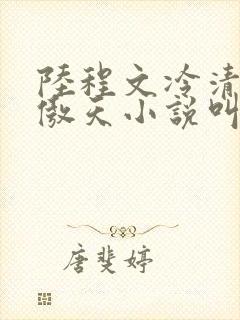 陸程文冷清
傲天小說叫
唐斐婷